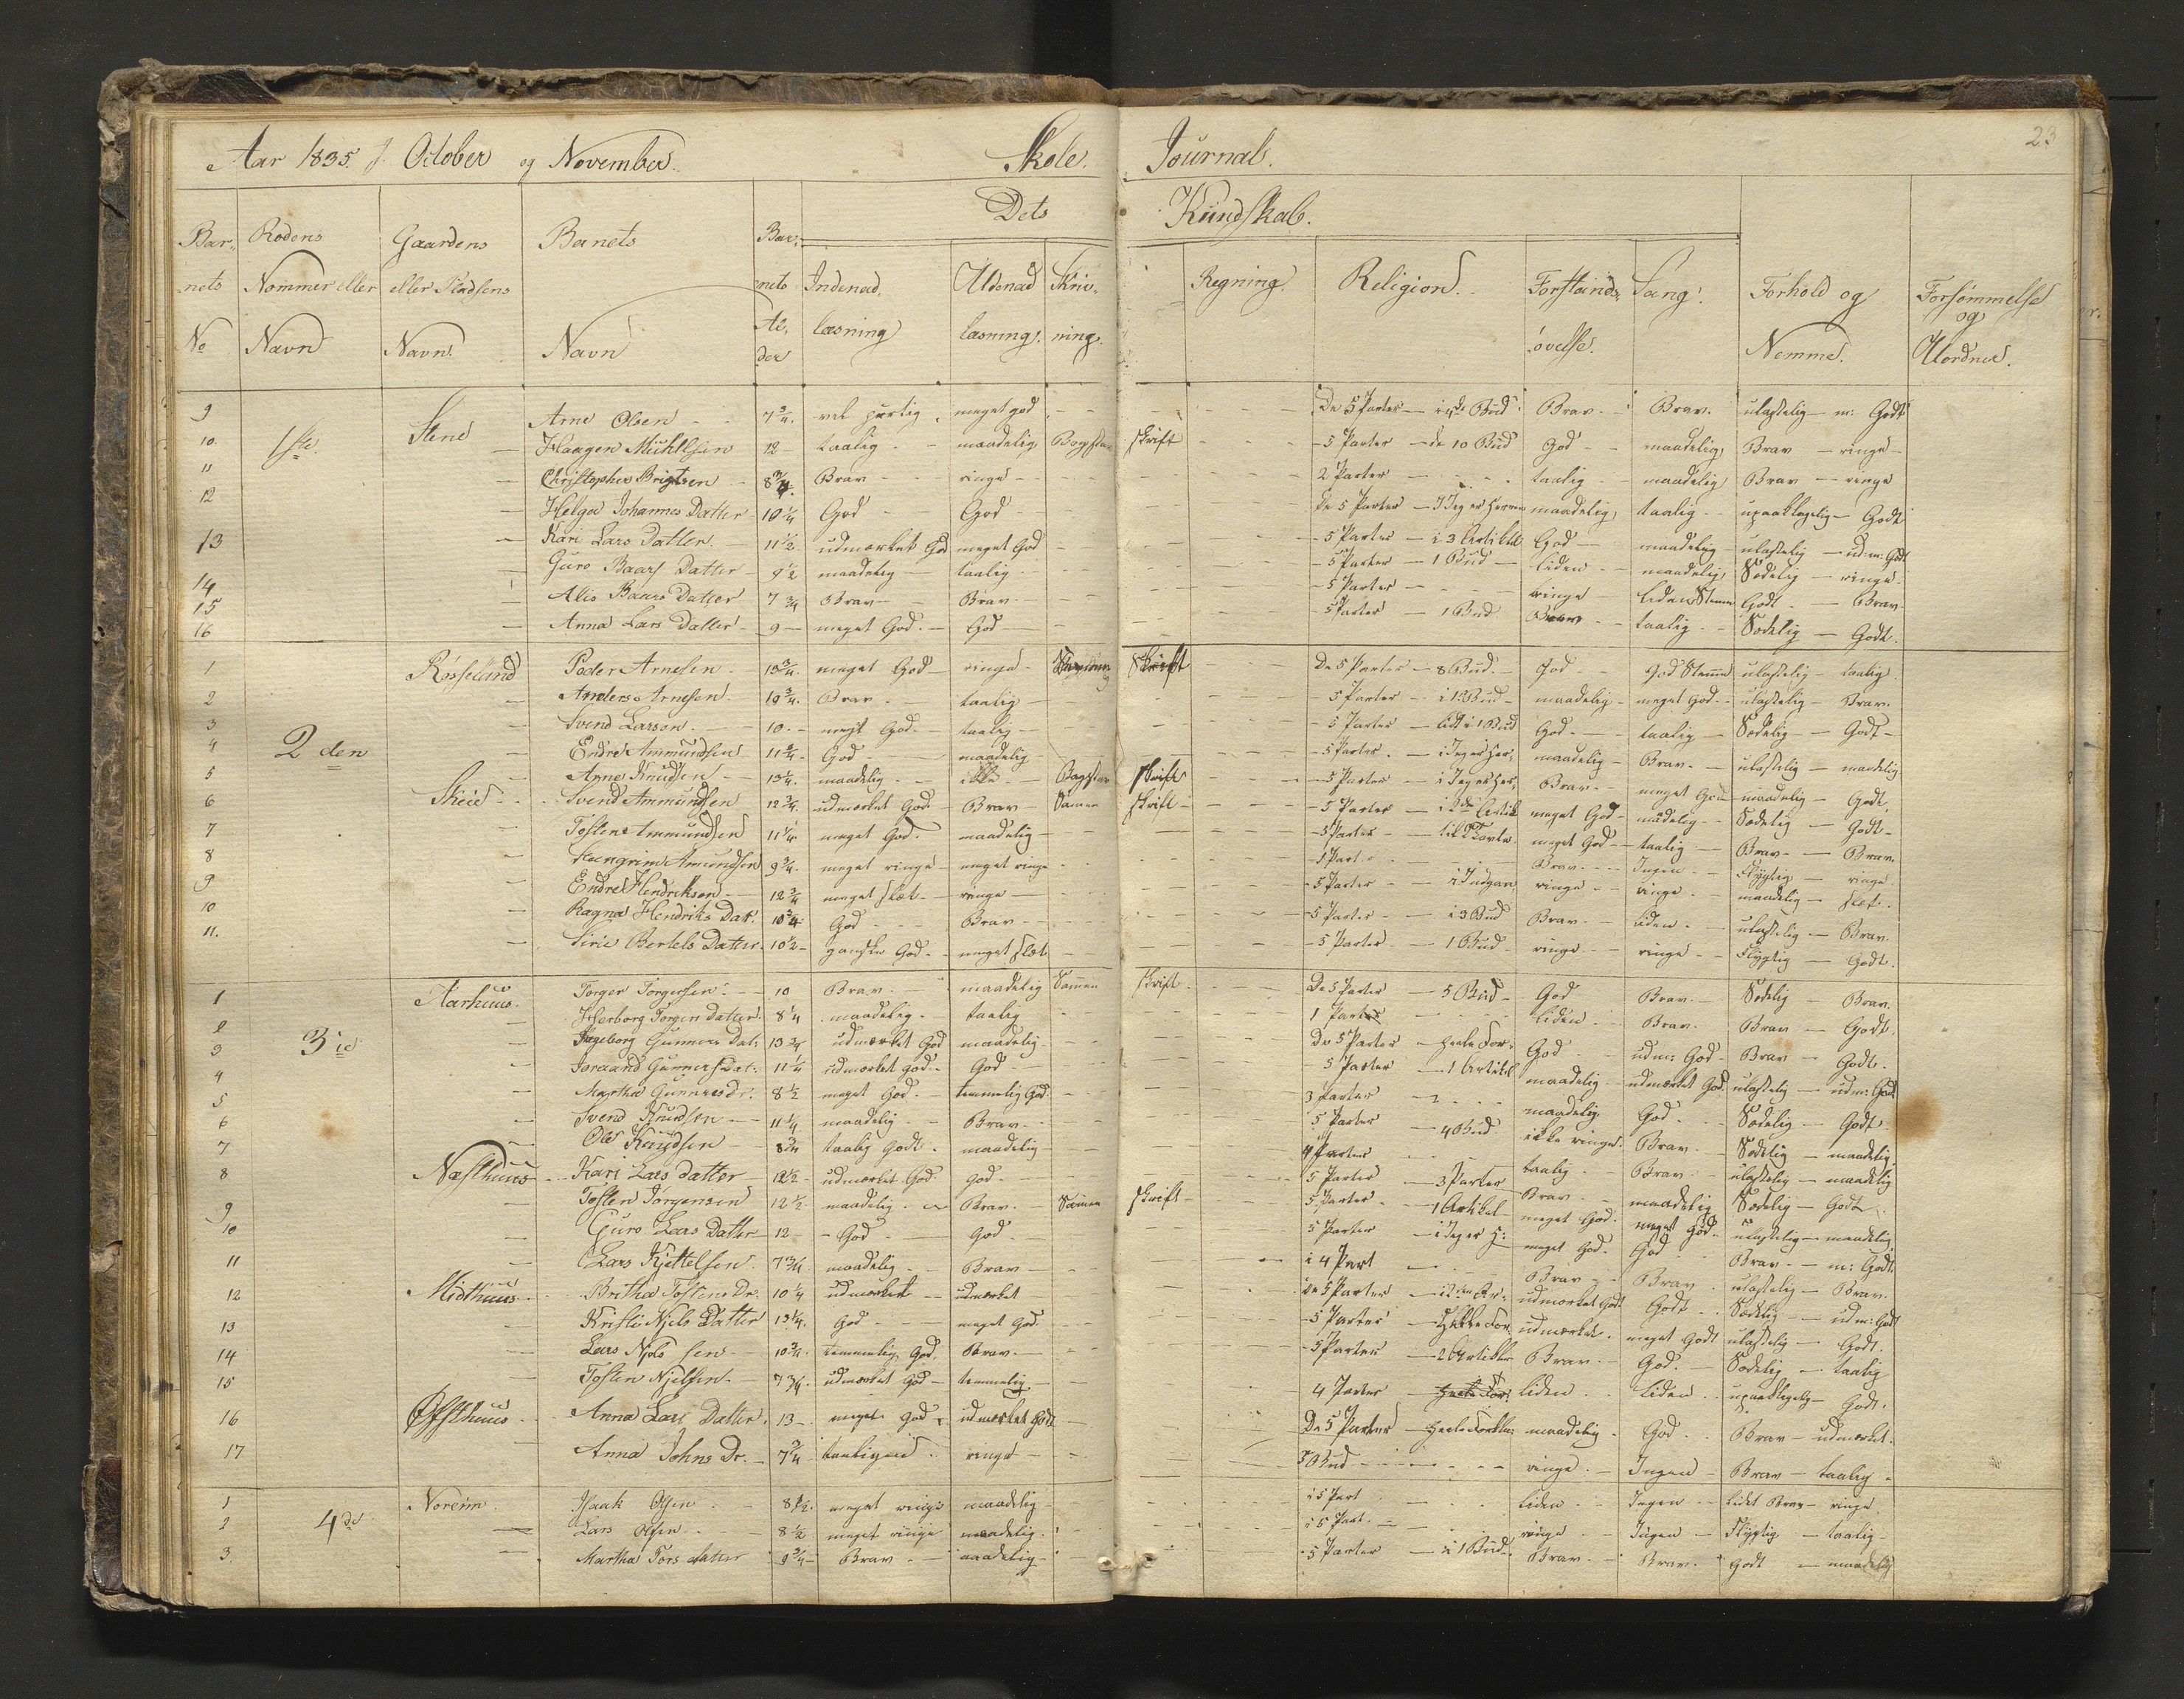 23
Aar 1835. f. October og November. Skole. Journal.
Dets Kundskab.
Bar- Rodens Gaardens Banets Bar-
nets Nommer eller eller Pladsens nets Indenad Udenad Skriv- Regning Religion. Forstands Sang. Forhold og Forsømmelse
og
No Navn Navn. Navn Al- læsning læsning. ning. øvelse. Nemme. Uorden.
der
9 Stene Arne Olsen 7 3/4 vel hurtig meget god De 5 Parter - i 4de Bud Brav. Brav. ulastelig - m: Godt
10. 1ste. Haagen 12 taalig - maadelig Bogstav skrift 5 Parter - de 10 Bud God maadelig Brav - ringe
11 Christopher 8 3/4 Brav ringe 2 Parter taalig maadelig Brav - ringe
12 Helga Johannes Datter 10 1/4 God God De 5 Parter - maadelig taalig upaaklagelig - Godt
13 Kari Lars Datter 11 1/2 udmærket God meget God 5 Parter - i 3 Artikel God maadelig ulastelig - ud: m: Godt
14 Guro Baars Datter 9 1/2 maadelig taalig 5 Parter - 1 Bud liden maadelig Sædelig - ringe
15 Alis Baars Datter 7 3/4 Brav Brav 5 Parter ringe liden Stemme Godt - Brav
16 Anna Lars Datter 9 meget God God 5 Parter - 1 Bud Brav taalig Sædelig - Godt.
1 Røsseland Peder Arnesen 13 3/4 meget God ringe Skrift De 5 Parter - 8 Bud. God God Stemme ulastelig - taalig
2 Anders Arnesen 10 3/4 Brav taalig 5 Parter - maadelig meget God ulastelig - Brav.
3 Svend Larsen 10 meget God taalig 5 Parter - lidt i 1 Bud God. taalig Sædelig - Godt
4 2den Endre Ammundsen 11 3/4 God maadelig 5 Parter - maadelig Brav. ulastelig - maadelig
5 Arne Knudsen 13 1/4 maadelig ikke Bogstav skrift 5 Parter - Brav. meget God maadelig - Godt
6 Skeie Svend Ammundsen 12 3/4 udmærket God Brav Samen skrift 5 Parter - Artik meget God maadelig Sædelig - Godt
7 Tosten Ammundsen 11 1/4 meget God maadelig 5 Parter - meget God taalig Brav - Brav
8 Steengrim Amundsen 9 3/4 meget ringe meget ringe 1 Part. Brav. Ingen Flygtig - ringe
9 Endre Hendriksen 12 3/4 meget slet ringe 5 Parter - ringe ringe maadelig - slet.
10 Ragna Hendriks Dat: 10 3/4 God Brav 5 Parter - i 3 Bud Brav. liden ulastelig - Brav
11. Siri Bertels Datter 10 1/2 ganske God meget slet 5 Parter - 1 Bud ringe ringe Flygtig - Godt.
1 Aarhuus. Torger Torgersen 10 Brav maadelig Samen skrift De 5 Parter - 5 Bud God Brav Sædelig - Brav.
2 Herborg Torgers Datter 8 1/4 maadelig taalig 1 Part liden Brav. Brav - Godt.
3 3ie Ingeborg Gunnars Dat: 13 3/4 udmærket God maadelig De 5 Parter - heele For: God udm: God Brav - Godt.
4 Joraand Gunnars Dat: 11 1/4 udmærket god God 5 Parter - 1 Artikel maadelig udmærket God ulastelig - udm: Godt
5 Martha Gunnars Dr. 8 1/2 meget God. temmelig God 3 Parter maadelig God Sædelig - Godt
6 Svend Knudsen 11 1/4 maadelig Brav 5 Parter - 4 Bud ikke ringe Brav Sædelig - maadelig
7 Ole Knudsen 8 3/4 taalig Godt. maadelig 4 Parter taalig Brav ulastelig - maadelig
8 Næsthuus Kari Lars Datter 12 1/2 udmærket God God 5 Parter - 3 Parter Brav maadelig Sædelig - Godt
9 Tosten Jørgensen 12 1/2 maadelig Brav. Samen skrift 5 Parter - 1 Artikel meget God. meget God. ulastelig - maadelig
10 Guro Lars Datter 12 God God 5 Parter - meget God. God Brav - m: Godt
11 Lars Kjettelsen 7 3/4 maadelig Brav i 4 Part Brav Brav ulastelig - Brav.
12 Midthuus Britha Tostens Dr. 10 1/4 udmærket udmærket de 5 Parter - udmærket Godt Godt Sædelig - udm: Godt
13 Kristi Njels Datter 13 1/4 God meget God 5 Parter - udmærket. meget Godt ulastelig - Godt.
14 Lars Njelssen 10 3/4 temmelig God. Brav. 5 Parter - 2 Artikler Brav God. Sædelig - taalig
15 Tosten Njelssen 7 3/4 udmærket God temmelig 4 Parter - liden liden upaaklagelig - Godt.
16 Øfsthuus Anna Lars Datter 13 meget God udmærket Godt De 5 Parter - heele Forkla: maadelig God. Brav - udmærket.
17 Anna Johns Dr. 7 3/4 ringe 3 Bud ringe Ingen Brav - taalig
1 Noreim Isaak Olsen 8 1/2 meget ringe maadelig i 5 Part liden Ingen lidet Brav - ringe
2 4de Lars Olsen 8 1/2 meget ringe maadelig i 5 Part. ringe Ingen Flygtig - taalig
3. Martha Tors datter 9 3/4 Brav maadelig 5 Parter - i 1 Bud Brav. Brav. Godt - maadelig